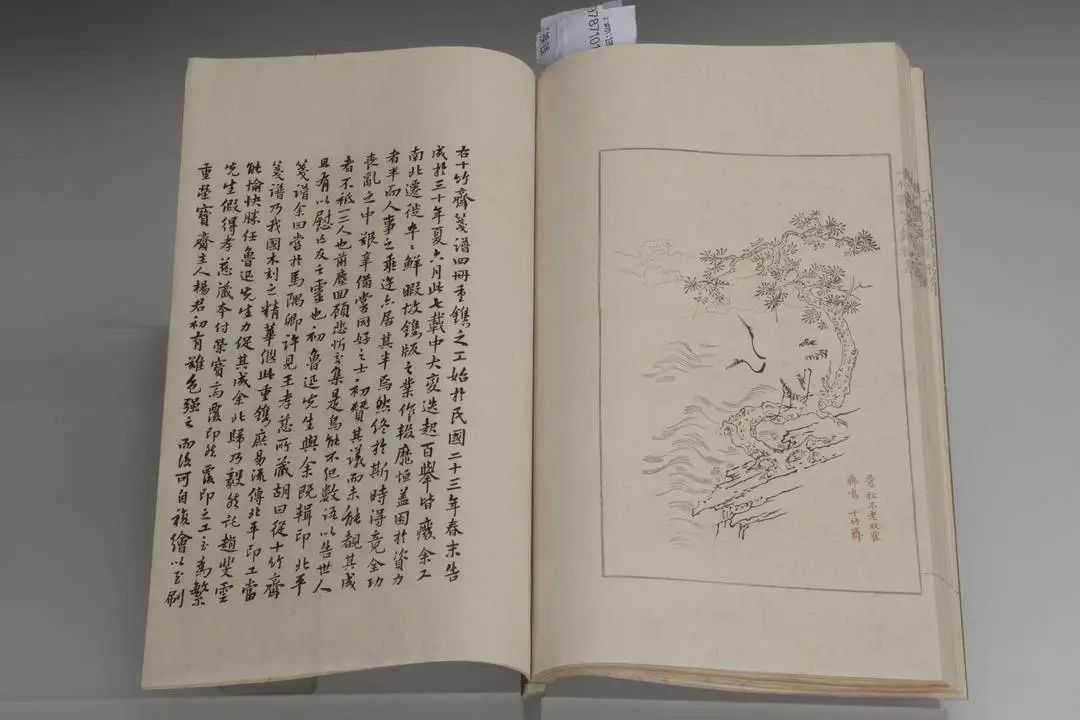 右十竹齋箋譜四冊重鐫之工始於民國二十三年春末告
成於三十年夏六月此七載中大變迭起百舉皆廢余又
南北遷徙卒卒鮮暇故鐫版之業作輟靡恒蓋困於資力
者半而人事之乖迕亦居其半焉然終於斯時得竟全功
喪亂之中艱辛備嘗同好之士初贊其議而未能覩其成
者不祗一二人也前塵回顧悲忻交集是烏能不氾數語以告世人
且有以慰亡友之靈也初魯迅先生與余既輯印北平
箋譜余曰嘗於馬隅卿許見王孝慈所藏胡曰從十竹齋
箋譜乃我國木刻之精華繼此重鐫庶易流傳北平印工當
能愉快勝任魯迅先生力促其成余北歸乃毅然託趙斐雲
先生假得孝慈藏本付榮寶齋覆印然覆印之工至為繁
重榮寶齋主人楊君初有難色強之而後可自複繪以至刷
蒼松不老双隺
齊鳴 十竹齋